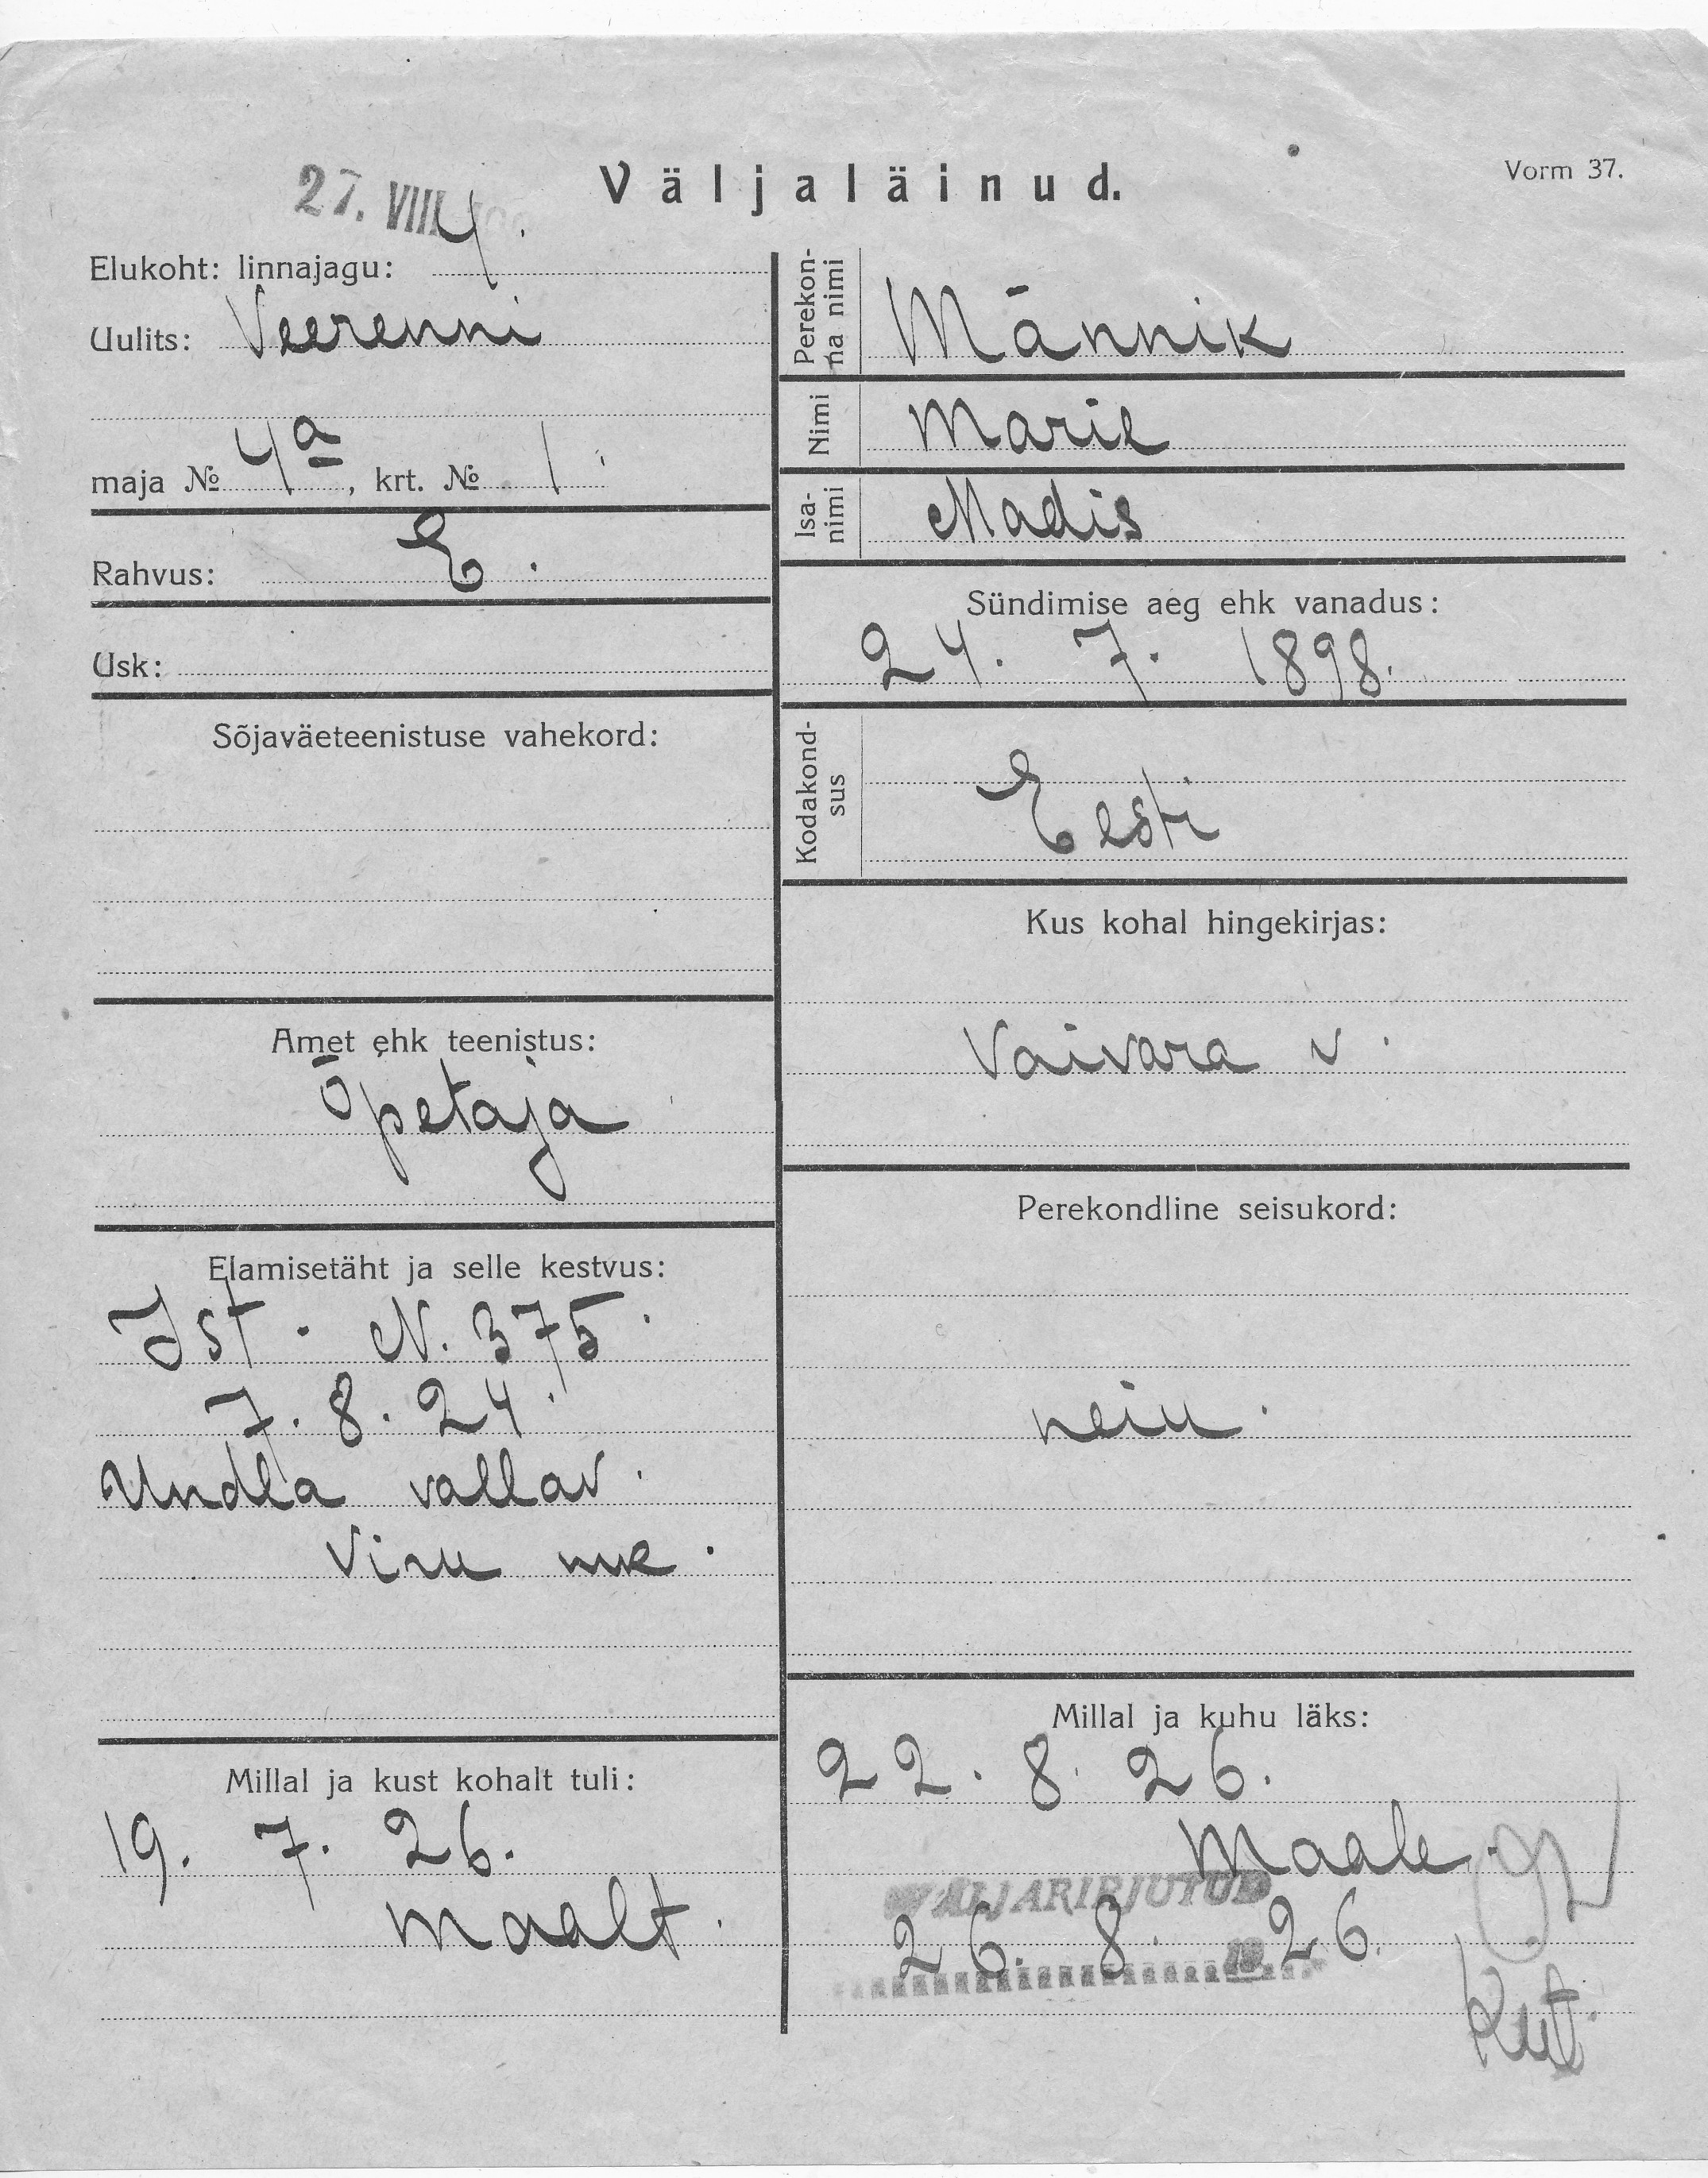 Väljaläinud.
Vorm 37.
27. VIII
Elukoht: linnajagu: 4.
Uulits: Veerenni
maja № 4a, krt. № 1
Rahvus: E.
Usk:
Sõjaväeteenistuse vahekord:
Amet ehk teenistus:
Õpetaja
Elamisetäht ja selle kestvus:
Ist. N. 375.
7. 8. 24.
Undla vallav.
Viru mk.
Millal ja kust kohalt tuli:
19. 7. 26.
Maalt.
Perekon-
na nimi
Männik
Nimi
Marie
Isa-
nimi
Madis
Sündimise aeg ehk vanadus:
24. 7. 1898.
Kodakond-
sus
Eesti
Kus kohal hingekirjas:
Vaivara v.
Perekondline seisukord:
neiu.
Millal ja kuhu läks:
22. 8. 26.
Maale.
26. 8. 1926.